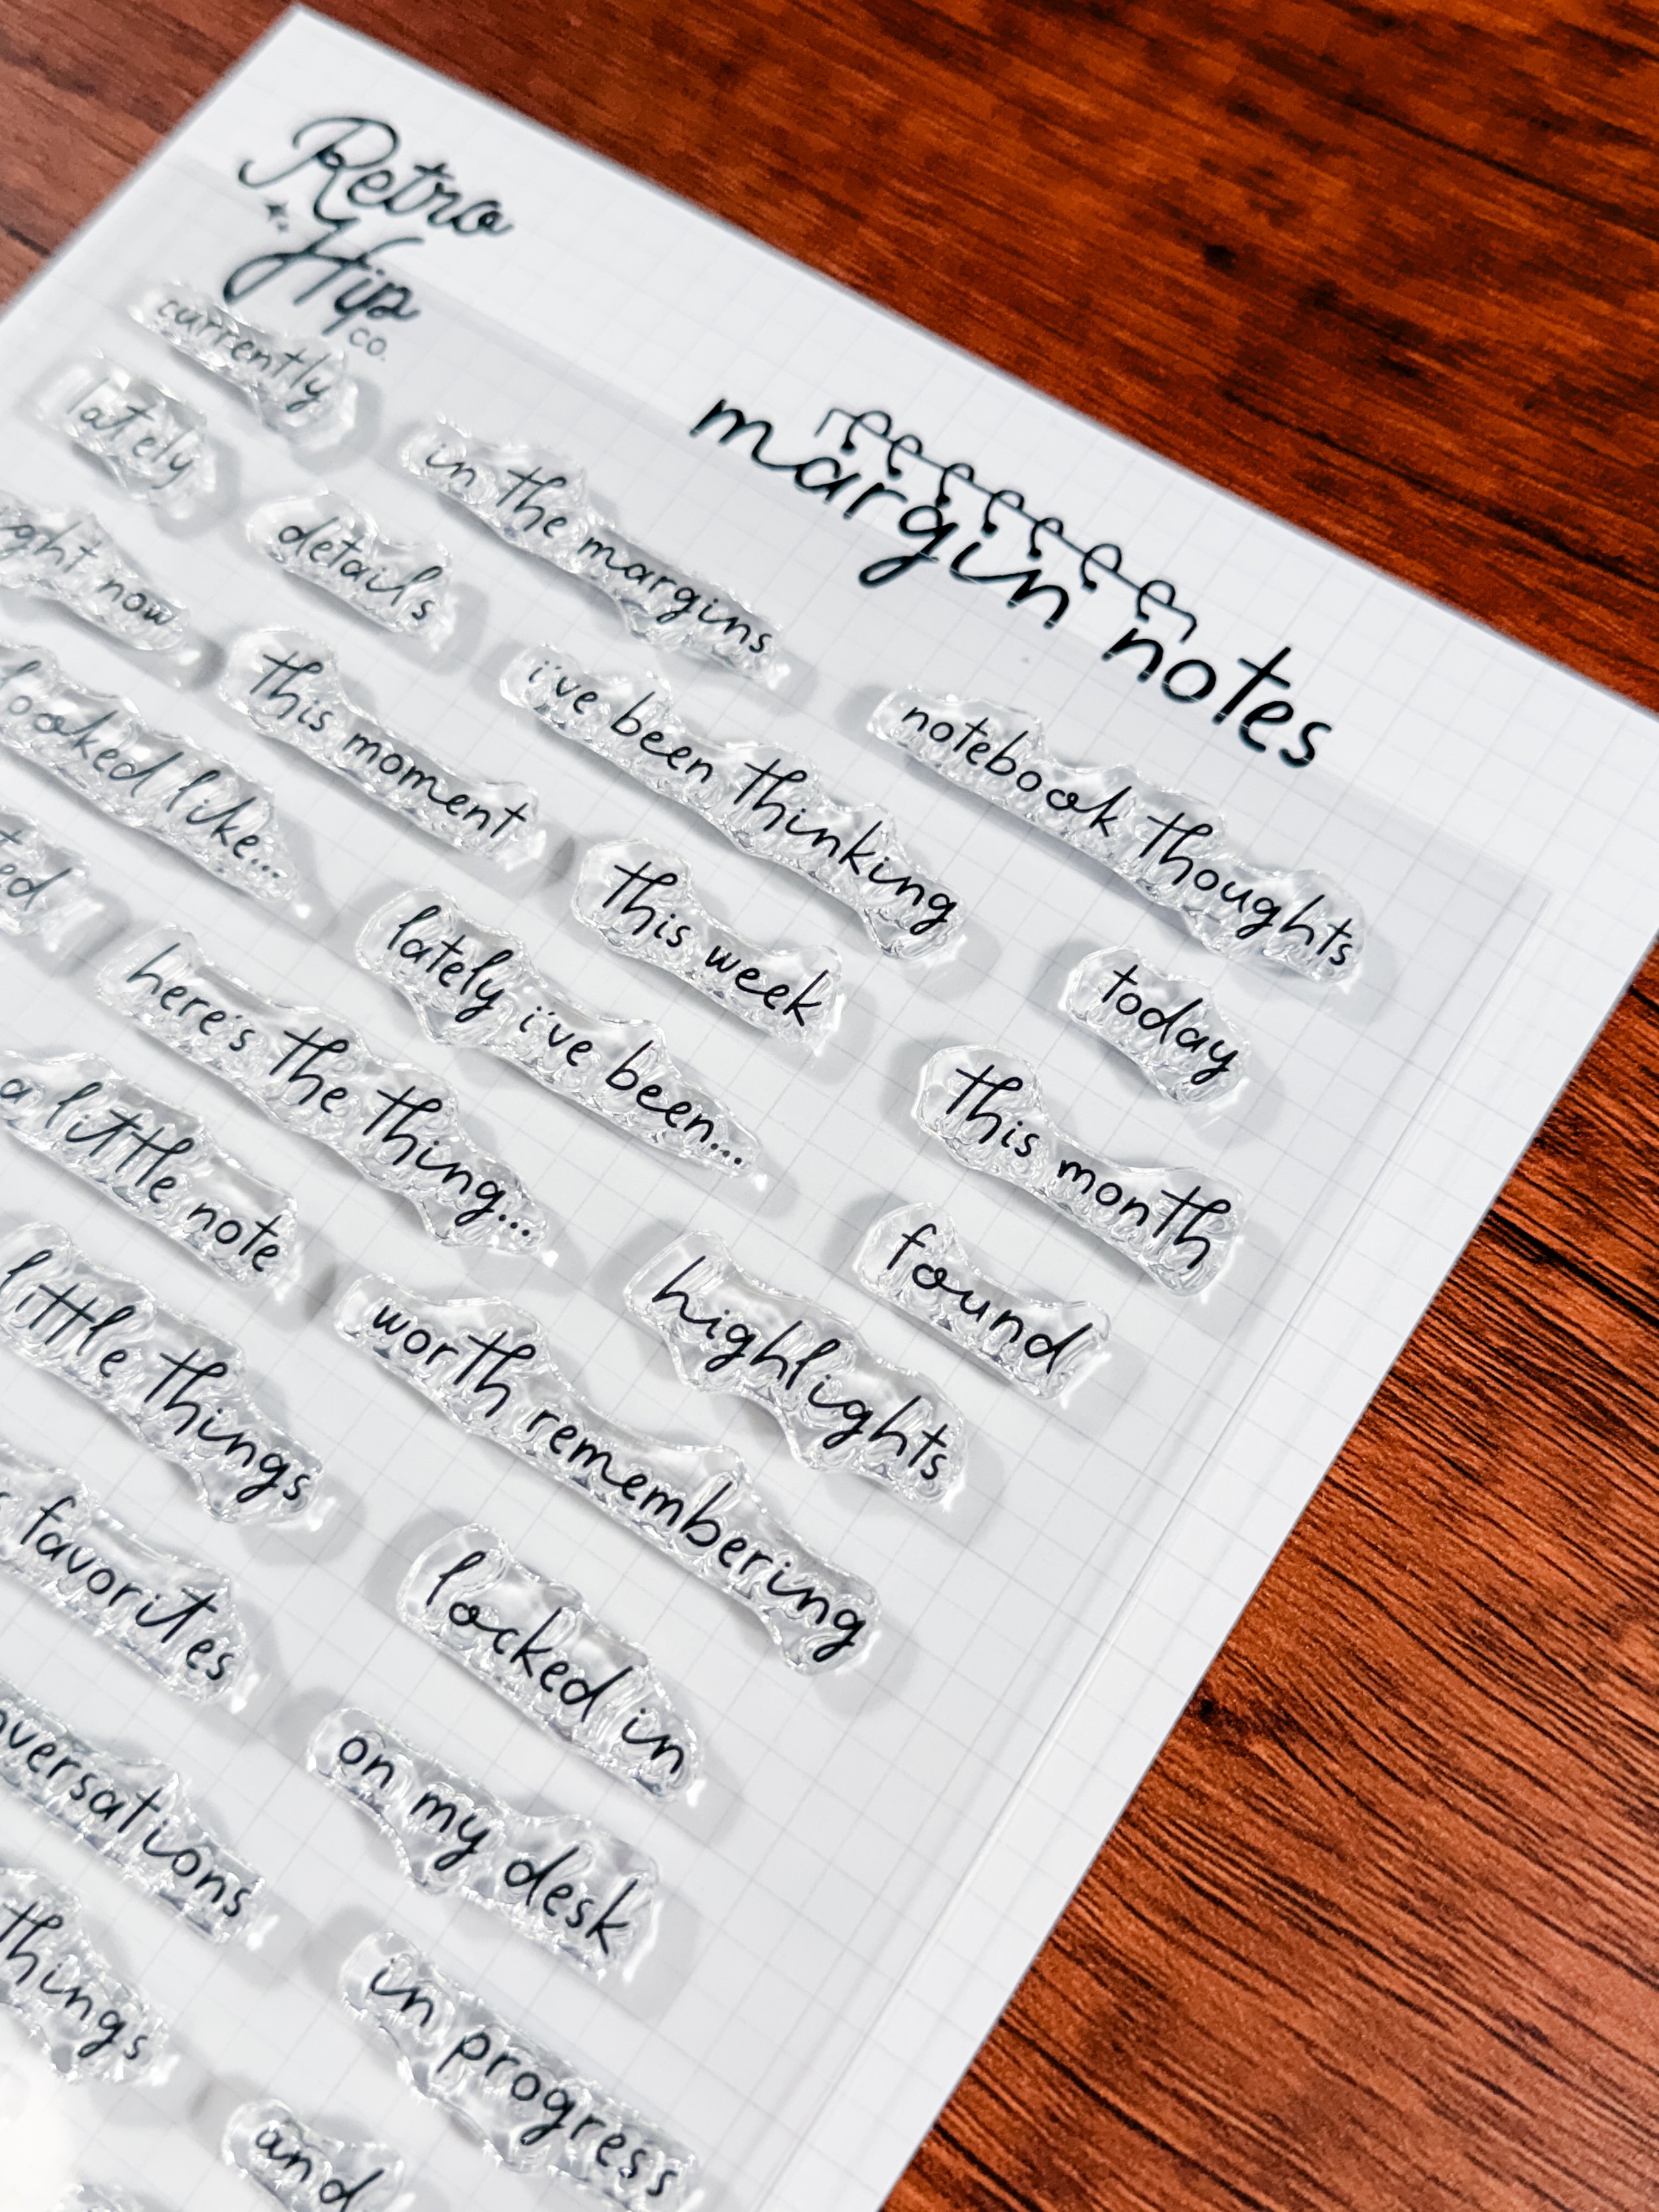 Retro
Hip
co.
margin notes
currently
in the margins
notebook thoughts
lately
details
i've been thinking
today
ght now
this moment
this week
this month
looked like...
lately i've been...
found
ted
here's the thing...
highlights
a little note
worth remembering
little things
locked in
favorites
on my desk
versations
in progress
things
and